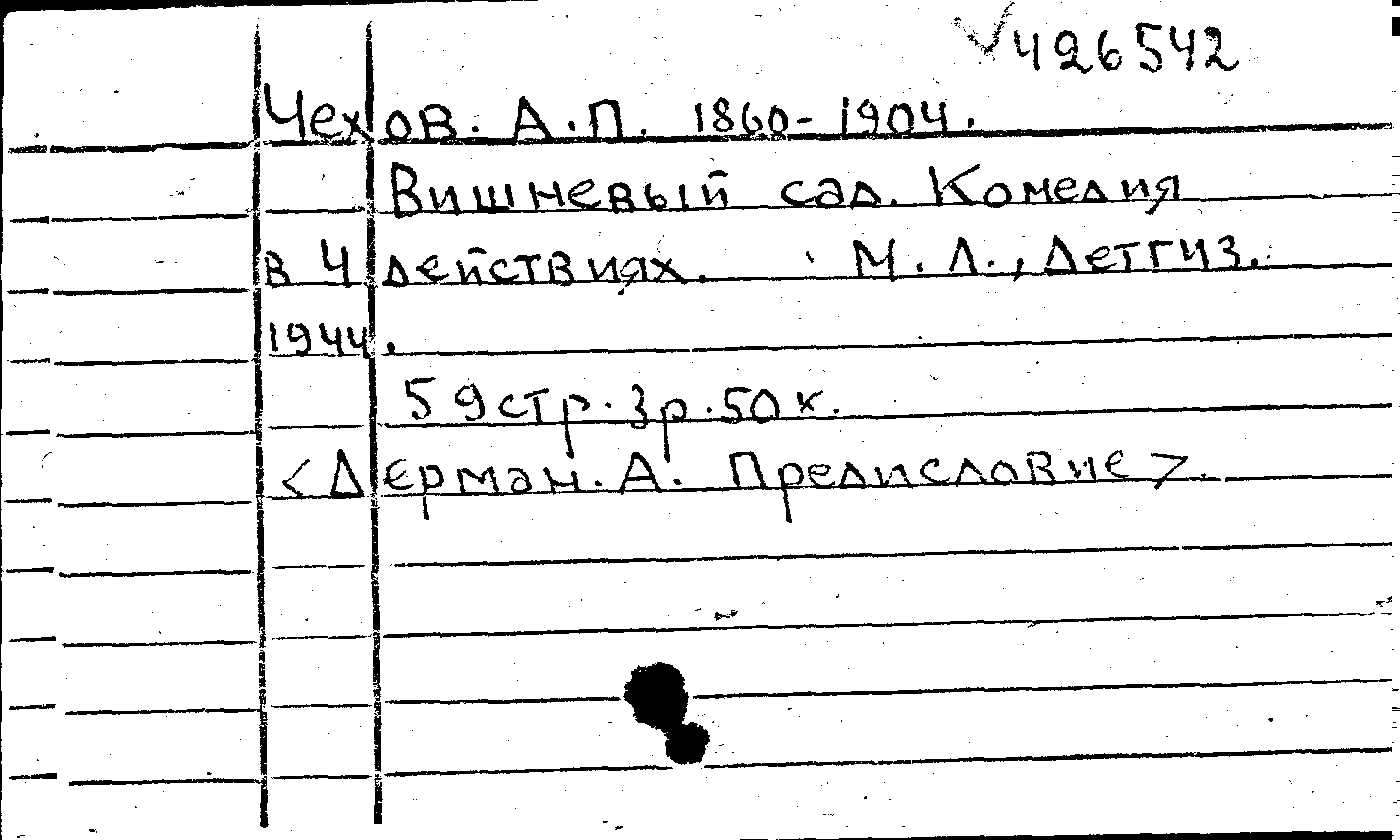 √426542
Чехов. А.П. 1860-1904.
Вишневый сад. Комедия
в 4 действиях. М. Л., Детгиз.
1944.
59стр. 3р. 50к.
<Дерман. А. Предисловие>.